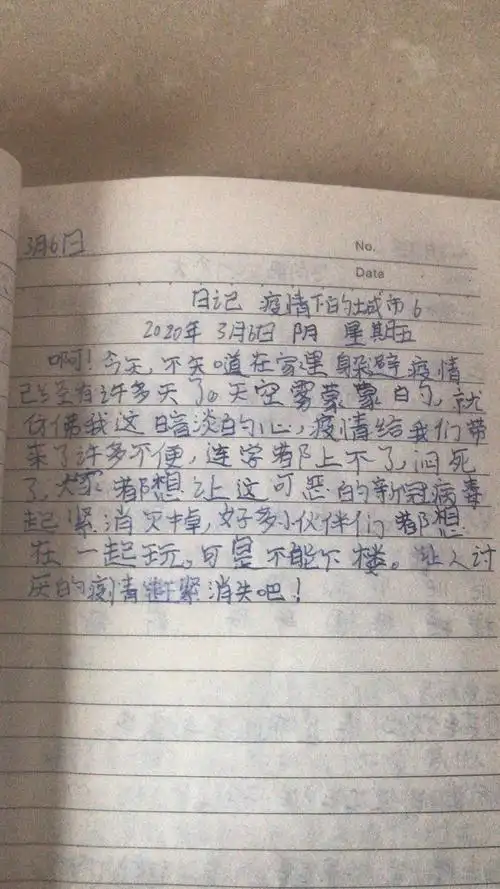 3月6日
No.
Date
日记 疫情下的城市6
2020年 3月6日 阴 星期五
啊!今天,不知道在家里躲避疫情
已经有许多天了。天空雾蒙蒙的,就
仿佛我这暗淡的心,疫情给我们带
来了许多不便,连学都上不了,闷死
了,大家都想让这可恶的新冠病毒
赶紧消灭掉,好多小伙伴们都想
在一起玩。可是不能下楼。让人讨
厌的疫情赶紧消失吧!